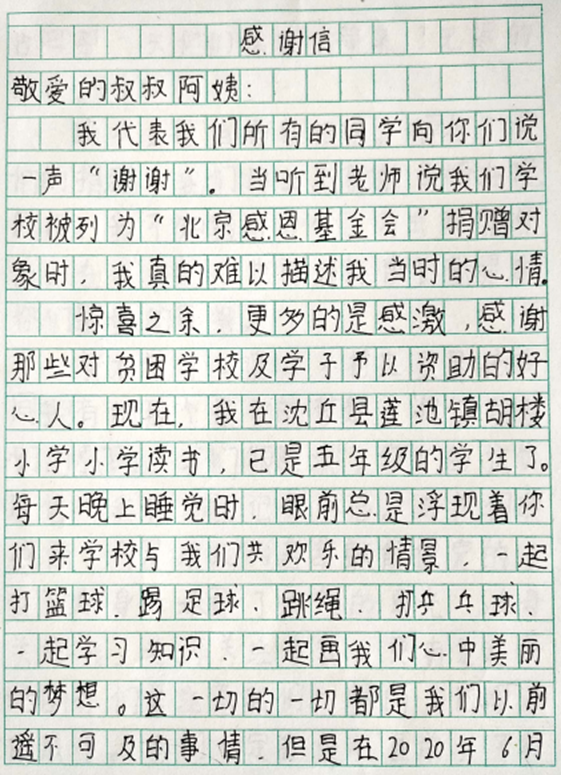 感谢信
敬爱的叔叔阿姨:
我代表我们所有的同学向你们说
一声“谢谢”。当听到老师说我们学
校被列为“北京感恩基金会”捐赠对
象时,我真的难以描述我当时的心情。
惊喜之余,更多的是感激,感谢
那些对贫困学校及学子予以资助的好
心人。现在,我在沈丘县莲池镇胡楼
小学小学读书,已是五年级的学生了。
每天晚上睡觉时,眼前总是浮现着你
们来学校与我们共欢乐的情景,一起
打篮球、踢足球、跳绳、打乒乓球、
一起学习知识、一起画我们心中美丽
的梦想。这一切的一切都是我们以前
遥不可及的事情,但是在2020年6月